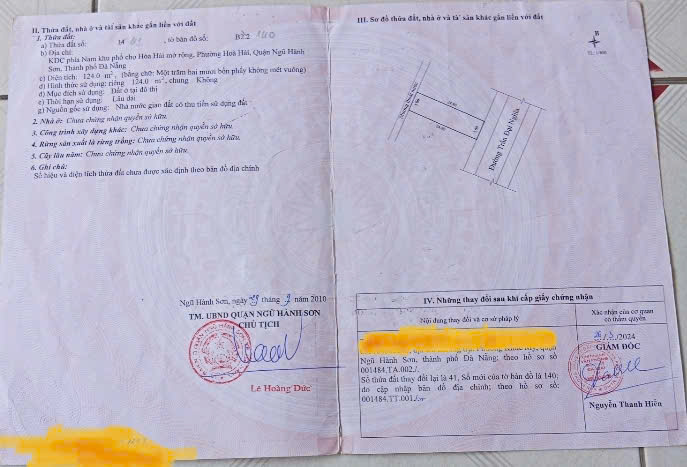 II. Thửa đất, nhà ở và tài sản khác gắn liền với đất
1. Thửa đất:
a) Thửa đất số: 14 , tờ bản đồ số: B22 140
b) Địa chỉ:
KDC phía Nam khu phố chợ Hòa Hải mở rộng, Phường Hoà Hải, Quận Ngũ Hành
Sơn, Thành phố Đà Nẵng
c) Diện tích: 124.0 m², (bằng chữ: Một trăm hai mươi bốn phẩy không mét vuông)
d) Hình thức sử dụng: riêng 124.0 m², chung Không
đ) Mục đích sử dụng: Đất ở tại đô thị
e) Thời hạn sử dụng: Lâu dài
g) Nguồn gốc sử dụng: Nhà nước giao đất có thu tiền sử dụng đất
2. Nhà ở: Chưa chứng nhận quyền sở hữu
3. Công trình xây dựng khác: Chưa chứng nhận quyền sở hữu
4. Rừng sản xuất là rừng trồng: Chưa chứng nhận quyền sở hữu
5. Cây lâu năm: Chưa chứng nhận quyền sở hữu
6. Ghi chú:
Số hiệu và diện tích thửa đất chưa được xác định theo bản đồ địa chính
Ngũ Hành Sơn, ngày tháng 2 năm 2010
TM. UBND QUẬN NGŨ HÀNH SƠN
CHỦ TỊCH
Lê Hoàng Đức
III. Sơ đồ thửa đất, nhà ở và tài sản khác gắn liền với đất
B
Đường Trần Đại Nghĩa
IV. Những thay đổi sau khi cấp giấy chứng nhận
Nội dung thay đổi và cơ sở pháp lý
Xác nhận của cơ quan
có thẩm quyền
Ngũ Hành Sơn, thành phố Đà Nẵng; theo hồ sơ số
001484.TA.002./.
Số thửa đất thay đổi lại là 41, Số mới của tờ bản đồ là 140;
do cập nhập bản đồ địa chính; theo hồ sơ số:
001484.TT.001./.
26/3/2024
GIÁM ĐỐC
Nguyễn Thanh Hiền